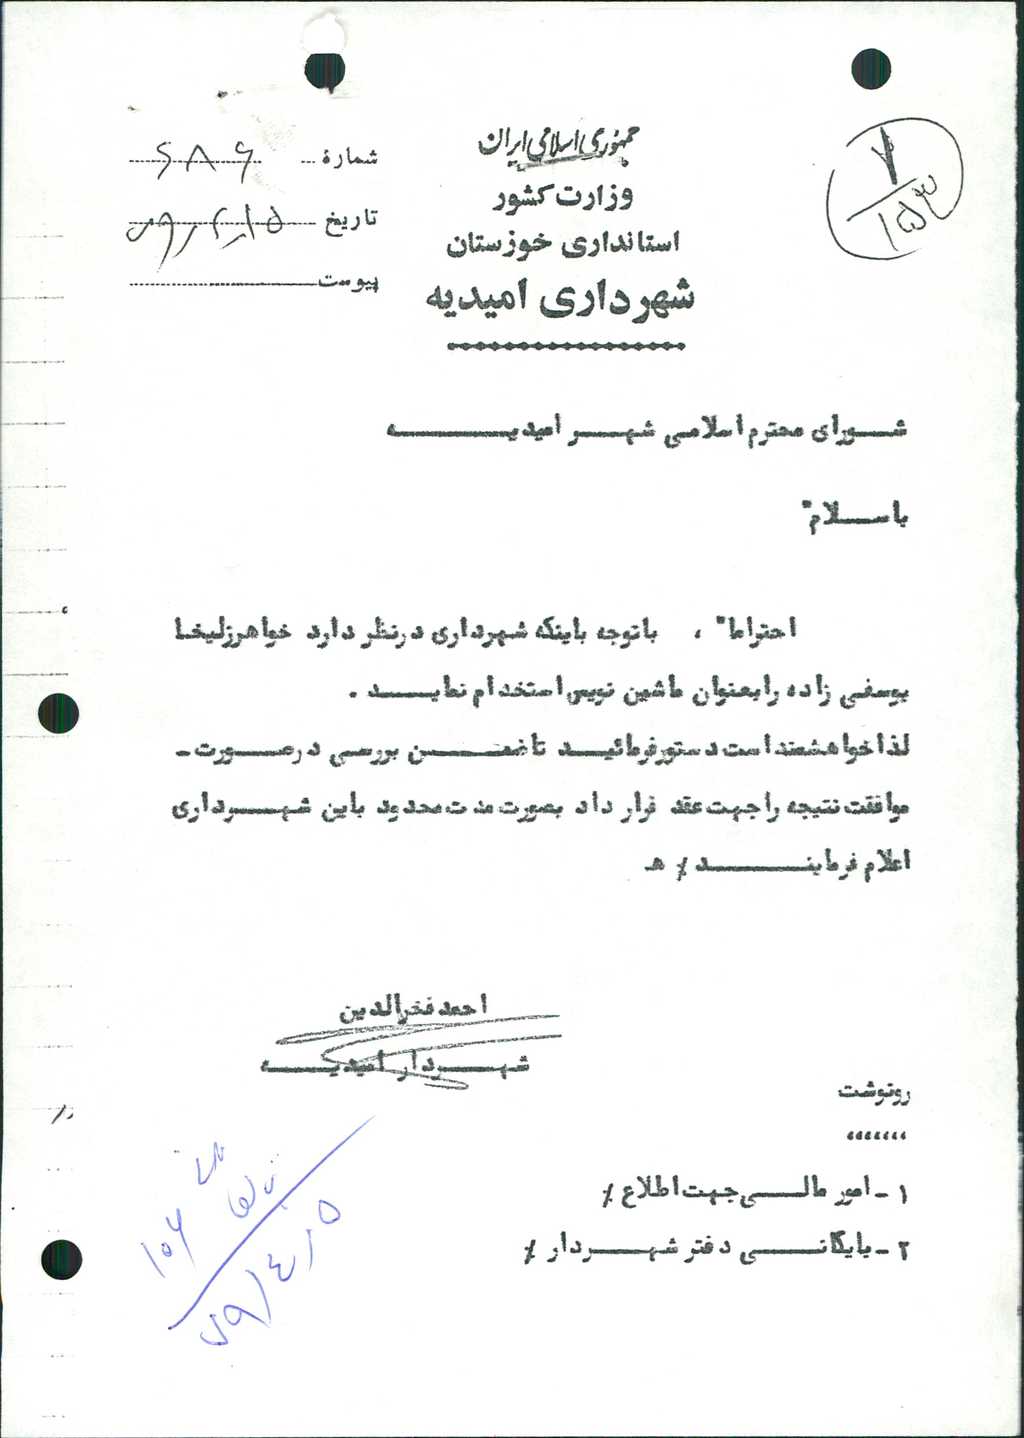 جمهوری اسلامی ایران
وزارت کشور
استانداری خوزستان
شهرداری امیدیه
شماره ۶۸۶
تاریخ ۵۹ر۴ر۵
پیوست
۲
۱۵۳
شورای محترم اسلامی شهر امیدیه
باسلام"
احتراما" ، باتوجه باینکه شهرداری درنظر دارد خواهرزلیخا
یوسفی زاده رابعنوان ماشین نویس استخدام نماید .
لذاخواهشمنداست دستورفرمائید تاضمن بررسی درصورت-
موافقت نتیجه راجهت عقد قرار داد بصورت مدت محدود باین شهرداری
اعلام فرمایند ٪ هـ
احمد فخرالدین
شهردار امیدیه
رونوشت
،،،،،،،
۱- امور مالی جهت اطلاع ٪
۲- بایگانی دفتر شهردار ٪
۵۹/۴/۵